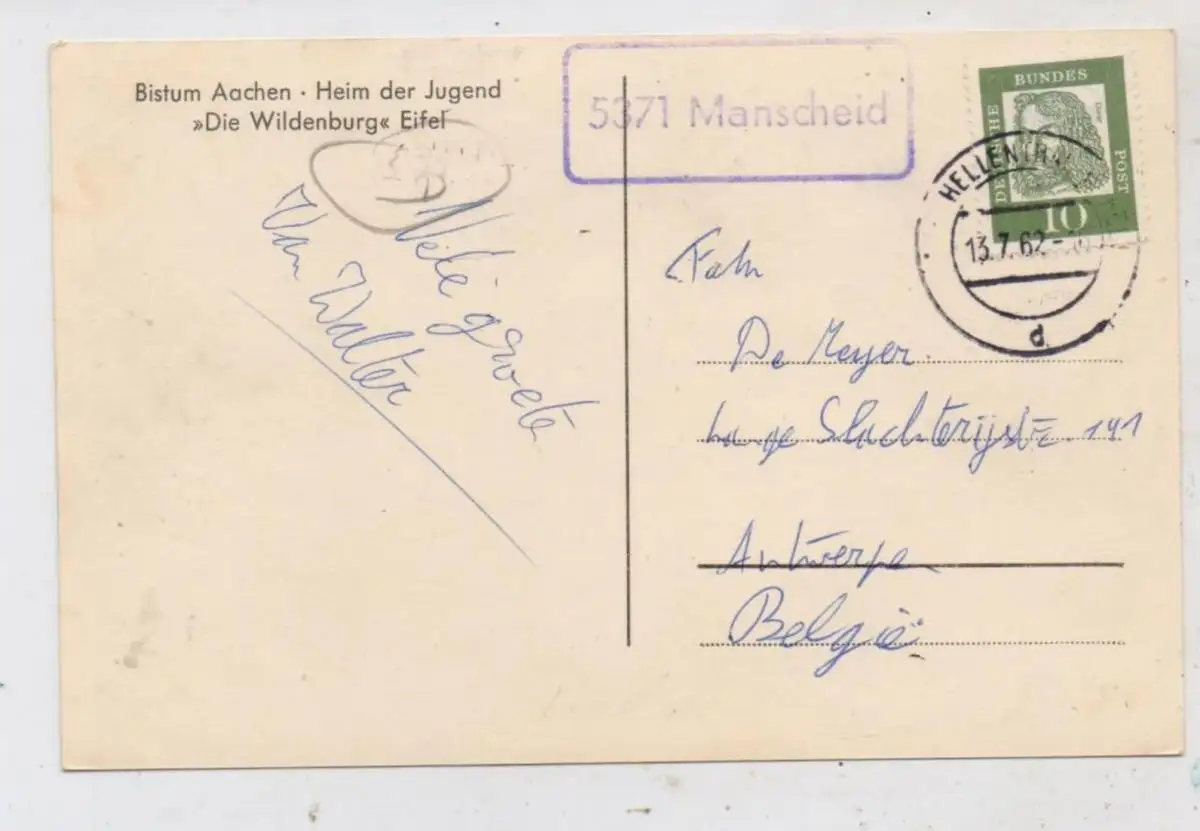 Bistum Aachen · Heim der Jugend
»Die Wildenburg« Eifel
5371 Manscheid
DEUTSCHE BUNDES POST
Dürer
10
HELLENTHAL
13.7.62
d
Vele groete
Van Walter
Fam
De Meyer
Lange Slachterijstr. 141
Antwerpen
België